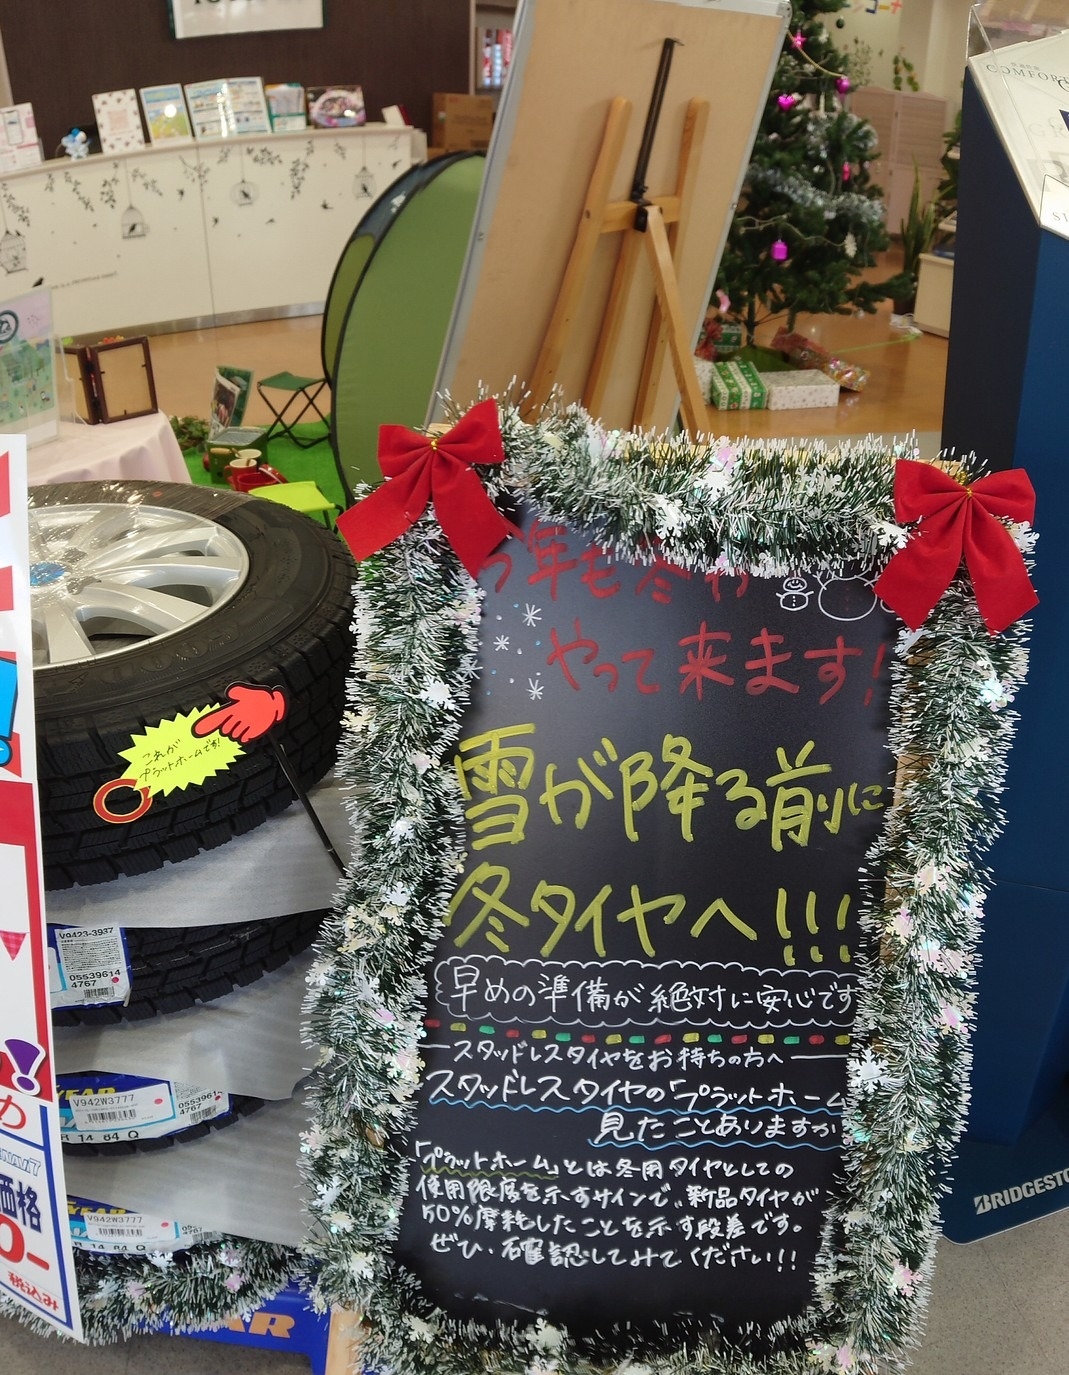 COMFORT
今年も冬が
やって来ます!
雪が降る前に
冬タイヤへ!!!
早めの準備が絶対に安心です
スタッドレスタイヤをお持ちの方へ
スタッドレスタイヤの「プラットホーム
見たことありますか
「プラットホーム」とは冬用タイヤとしての
使用限度を示すサインで、新品タイヤが
50%摩耗したことを示す段差です。
ぜひ、確認してみてください!!
これが
プラットホームです!
V9423-3937
05539614
4767
YEAR
V942W3777
0553961
4767
14 84 Q
YEAR
V942W3777
14 84 Q
め
価格
0-
税込み
AR
BRIDGESTO